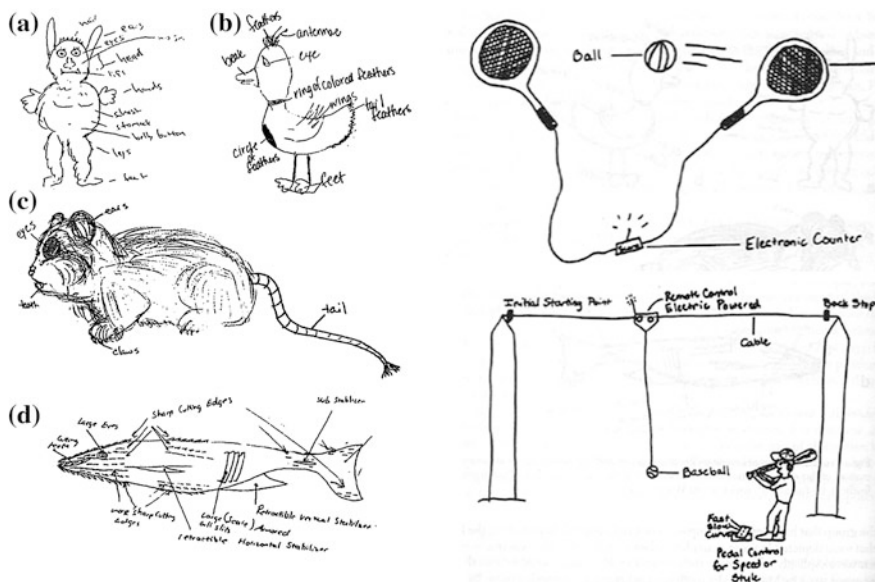 (a)
ears
eyes
head
lips
hands
chest
stomach
belly button
legs
feet
(b)
feathers
antennae
beak
eye
ring of colored feathers
wings
tail feathers
circle of feathers
feet
(c)
ears
eyes
teeth
claws
tail
(d)
Large Eyes
Sharp Cutting Edges
Stabilizer
more Sharp Cutting Edges
Large (Scale) Armored
Gill Slits
Retractible Vertical Stabilizer
retractible Horizontal Stabilizer
Ball
Score
Electronic Counter
Initial Starting Point
Remote Control
Electric Powered
Back Stop
Cable
Baseball
Fast
Slow
Curve
Pedal Control
for Speed or
Style